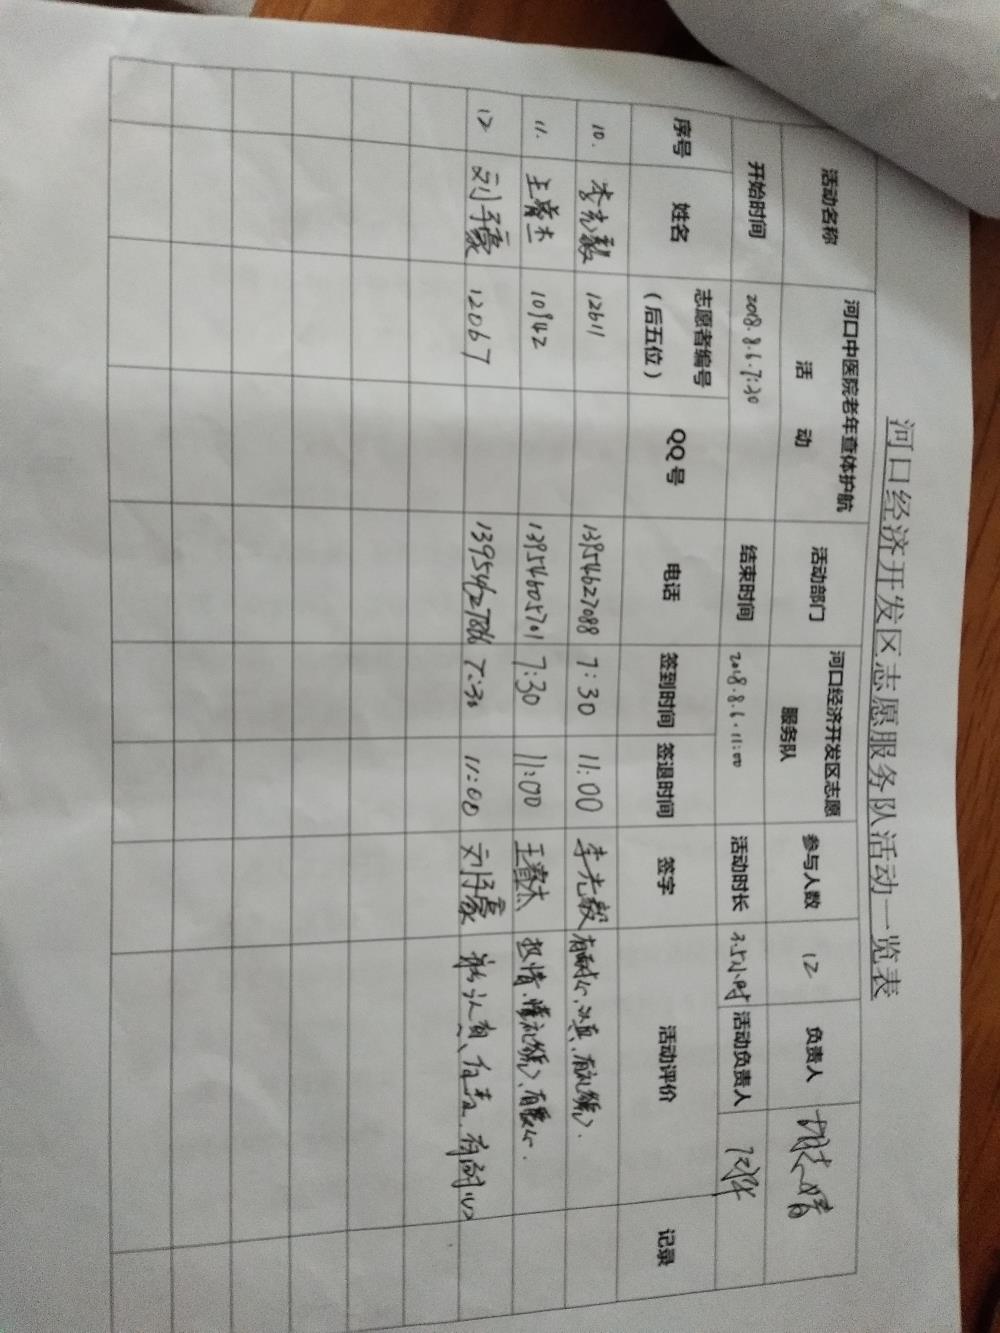 河口经济开发区志愿服务队活动一览表
活动名称 河口中医院老年查体护航活 动 活动部门 河口经济开发区志愿服务队 参与人数 12 负责人
开始时间 2018.8.6.7:30 结束时间 2018.8.6.11:00 活动时长 3.5小时 活动负责人
序号 姓名 志愿者编号(后五位) QQ号 电话 签到时间 签退时间 签字 活动评价 记录
10. 李光毅 12611 13954627088 7:30 11:00 李光毅 有耐心、认真、有礼貌、
11. 王睿杰 10942 13954605701 7:30 11:00 王睿杰 热情、懂礼貌、有爱心.
12 刘子豪 12067 7:30 11:00 刘子豪 负责、有耐心